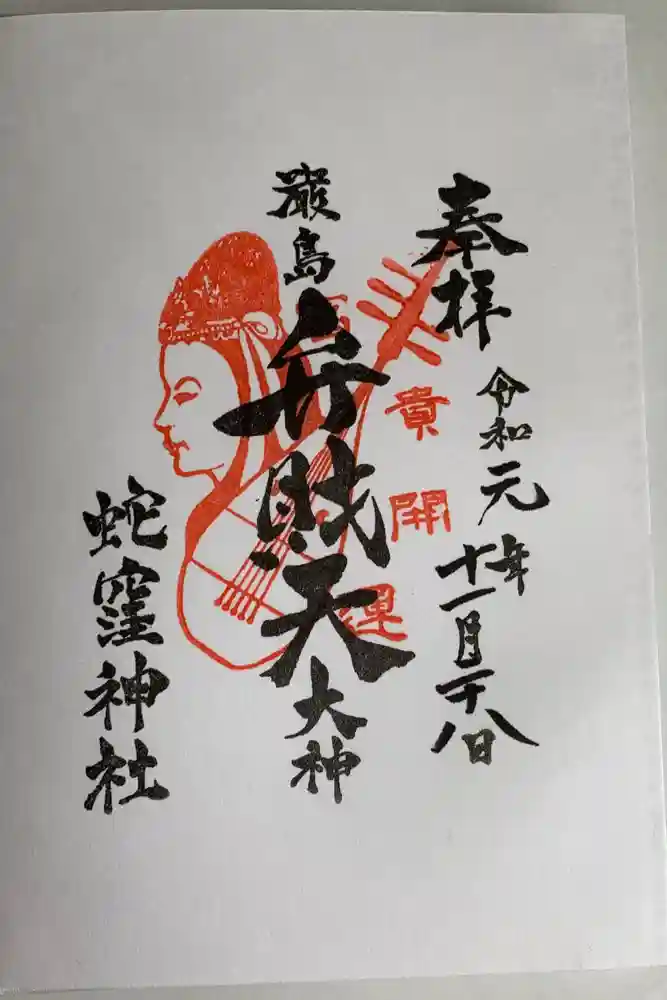 奉拝
令和元年
十一月二十八日
巌島
弁財天
大神
貴
開
運
蛇窪神社